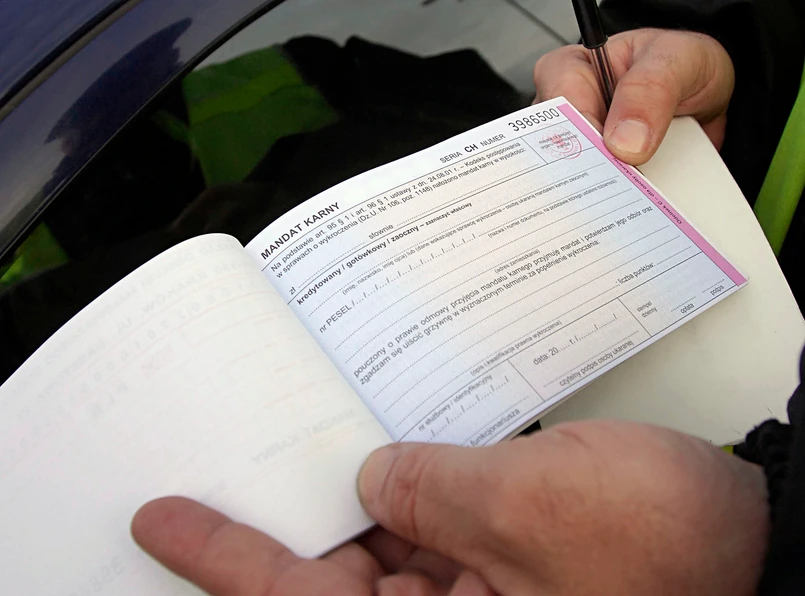 SERIA CH NUMER 3986500
MANDAT KARNY
Na podstawie art. 95 § 1 i art. 96 § 1 ustawy z dn. 24.08.01 r. – Kodeks postępowania
w sprawach o wykroczenia (Dz.U. Nr 106, poz. 1148) nałożono mandat karny w wysokości:
zł słownie
kredytowany / gotówkowy / zaoczny – zaznaczyć właściwy
(imię, nazwisko, imię ojca) lub (dane wskazujące sprawcę wykroczenia – osobę ukaraną mandatem karnym zaocznym)
nr PESEL
(nazwa i numer dokumentu, na podstawie którego ustalono tożsamość)
(adres zamieszkania)
pouczony o prawie odmowy przyjęcia mandatu karnego przyjmuję mandat i potwierdzam jego odbiór oraz
zgadzam się uiścić grzywnę w wyznaczonym terminie za popełnienie wykroczenia:
liczba punktów:
(opis i kwalifikacja prawna wykroczenia)
nr służbowy / identyfikacyjny
data 20 r.
stempel
dzienny
opłata
podpis
funkcjonariusza
czytelny podpis osoby ukaranej
MANDAT KARNY